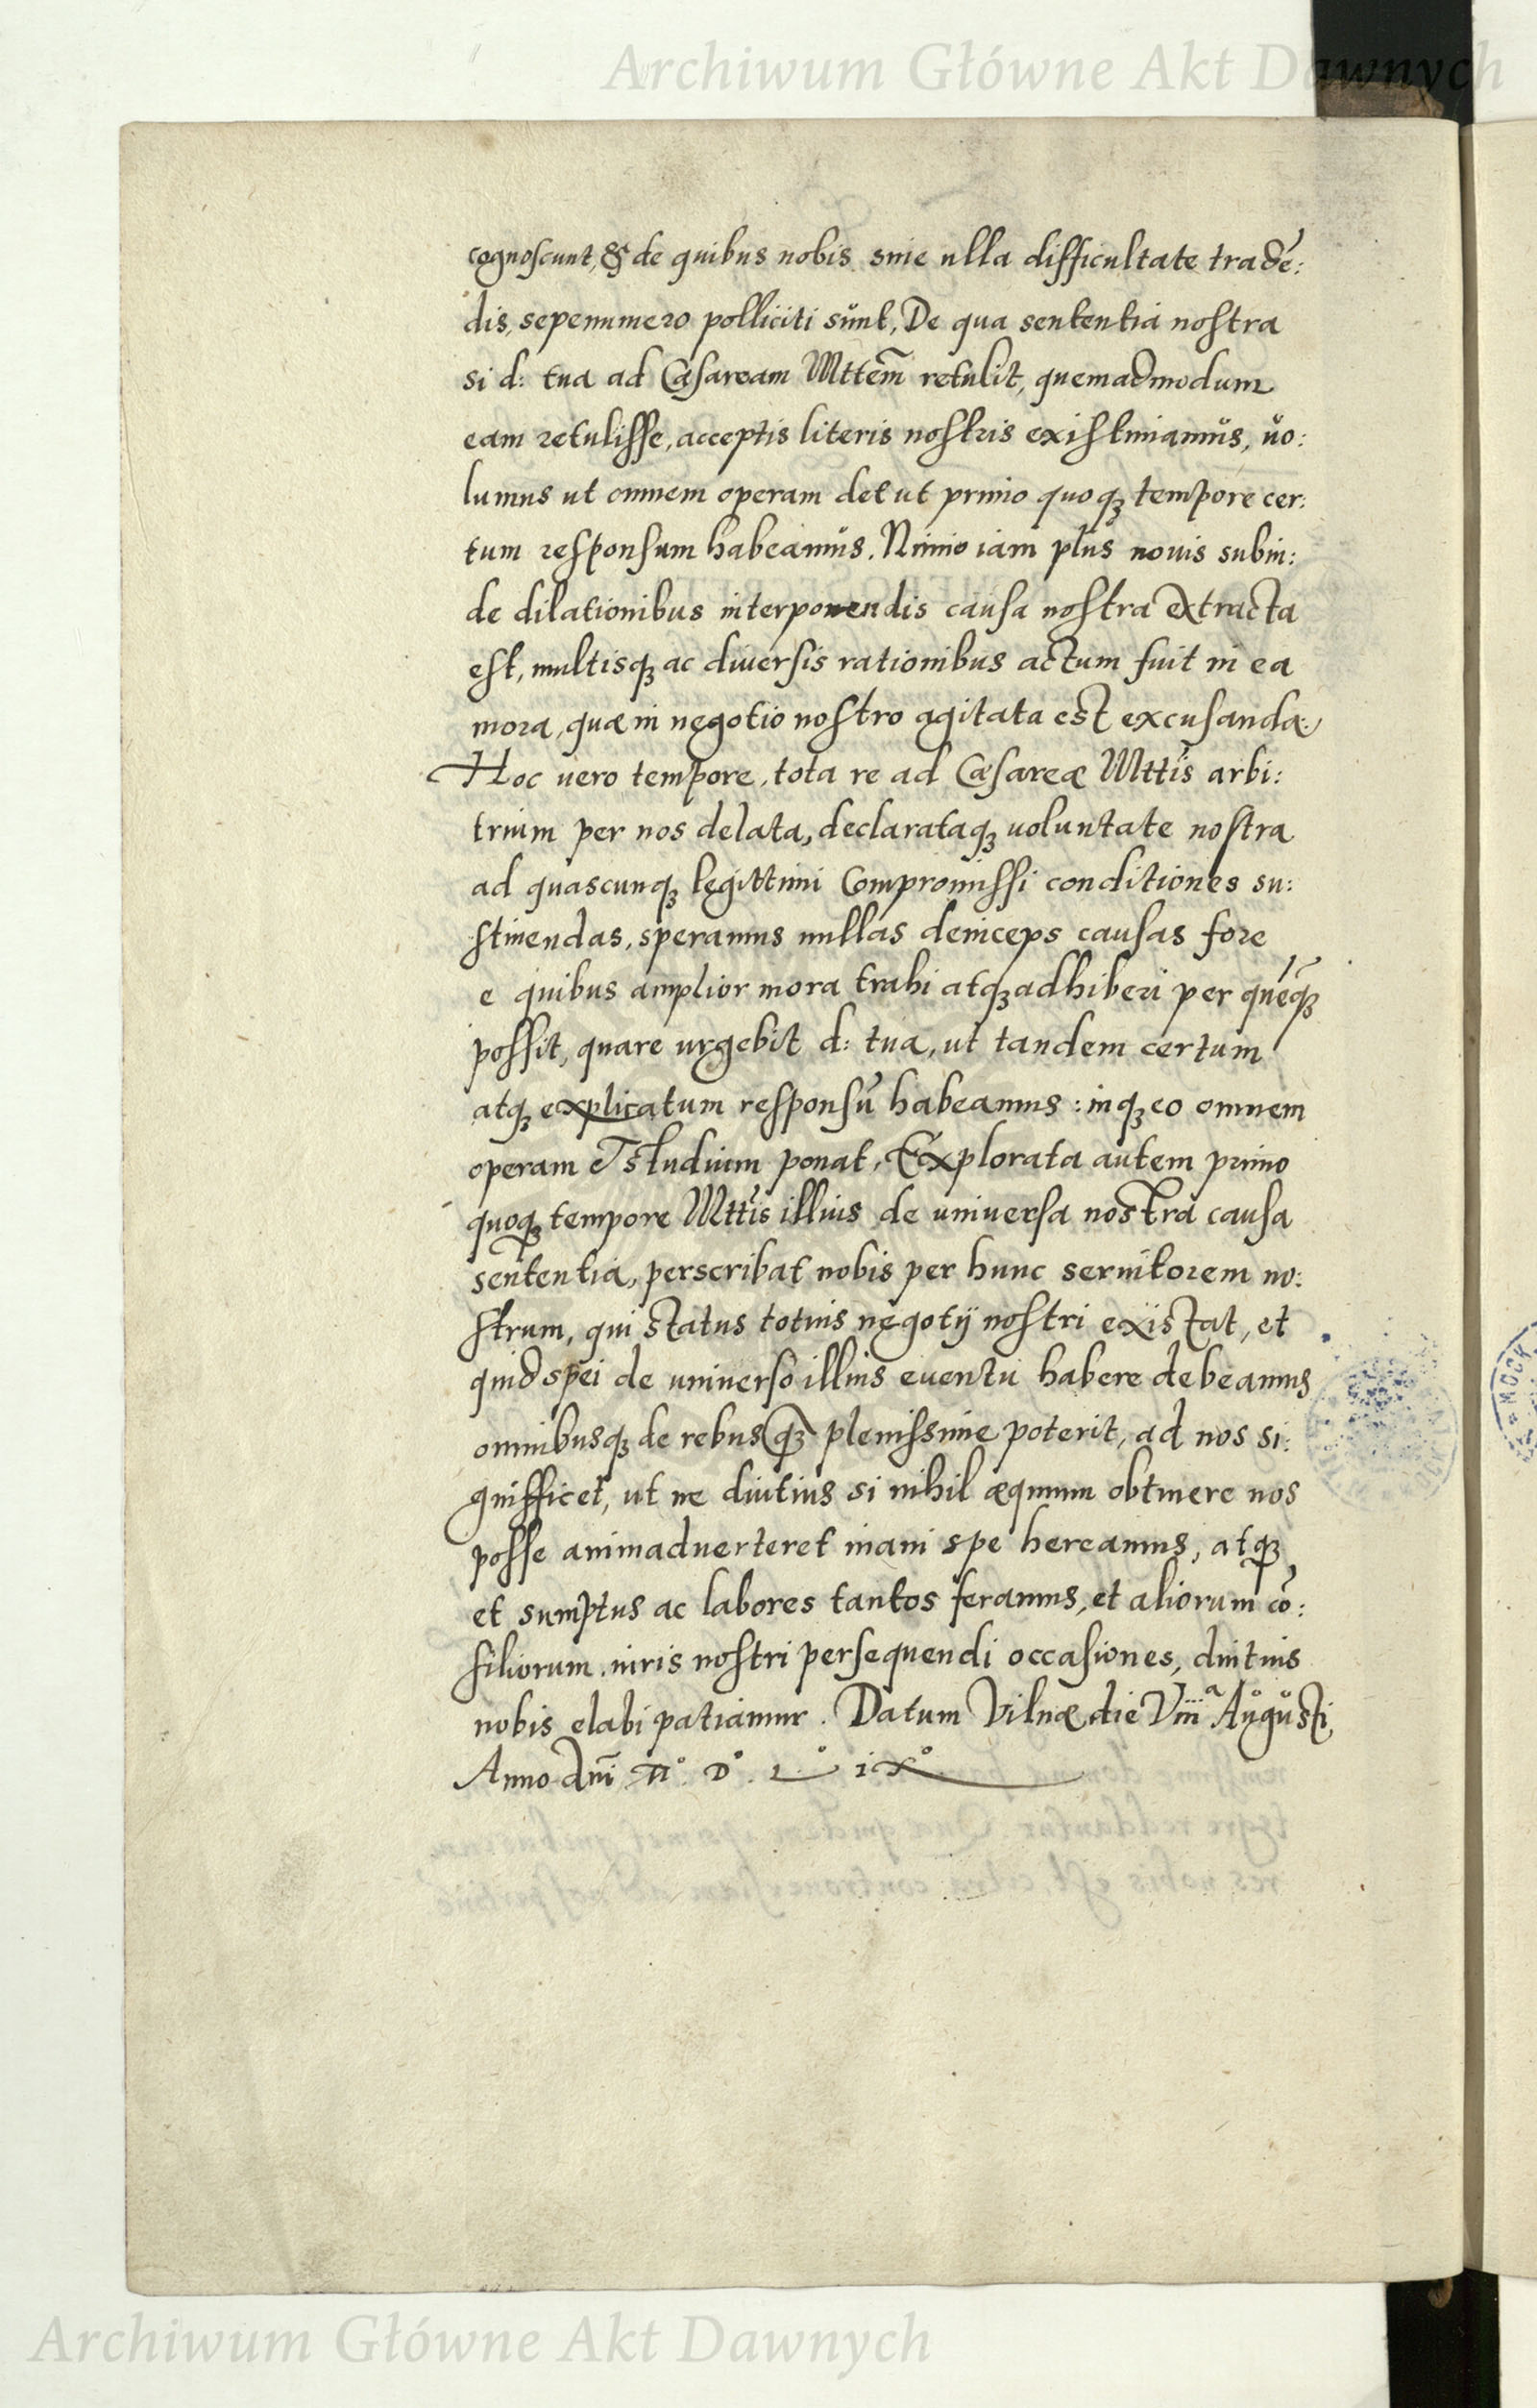 Archiwum Główne Akt Dawnych
cognoscunt, & de quibus nobis sine ulla difficultate tradē:
dis, sepenumero polliciti sunt, De qua sententia nostra
si d: tua ad Cæsaream Mttem̃ retulit, quemadmodum
eam retulisse, acceptis literis nostris existimamus, uo:
lumus ut omnem operam det ut primo quoqꝫ tempore cer:
tum responsum habeamus. Nimio iam plus nouis subin:
de dilationibus interponendis causa nostra extracta
est, multisqꝫ ac diuersis rationibus actum fuit in ea
mora, quæ in negotio nostro agitata est excusanda.
Hoc uero tempore, tota re ad Cæsareæ Mttis arbi:
trium per nos delata, declarataqꝫ uoluntate nostra
ad quascunqꝫ legittimi Compromissi conditiones su:
stinendas, speramus nullas deinceps causas fore
e quibus amplior mora trahi atqꝫ adhiberi per quēqꝫ
possit, quare urgebit d: tua, ut tandem certum
atqꝫ explicatum responsū habeamus: inqꝫ eo omnem
operam et studium ponat. Explorata autem primo
quoqꝫ tempore Mttis illius de uniuersa nostra causa
sententia, perscribat nobis per hunc seruitorem no:
strum, qui status totius negotij nostri existat, et
quid spei de uniuerso illius euentu habere debeamus
omnibusqꝫ de rebus qꝫ̃ plenissime poterit, ad nos si:
gnifficet, ut ne diutius si nihil æquum obtinere nos
posse animaduerteret inani spe hereamus, atqꝫ
et sumptus ac labores tantos feramus, et aliorum cō:
siliorum, iuris nostri persequendi occasiones, diutius
nobis elabi patiamur. Datum Vilnæ die Viiiª Augusti,
Anno dnĩ Mº. Dº. Lº iXº
Archiwum Główne Akt Dawnych